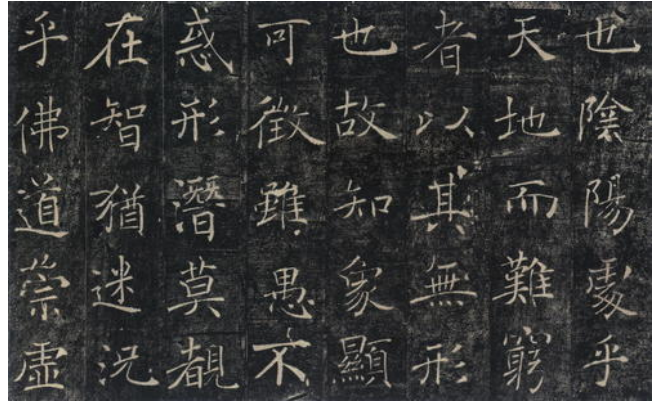 也陰陽處乎
天地而難窮
者以其無形
也故知象顯
可徵雖愚不
惑形潛莫覩
在智猶迷況
乎佛道崇虛